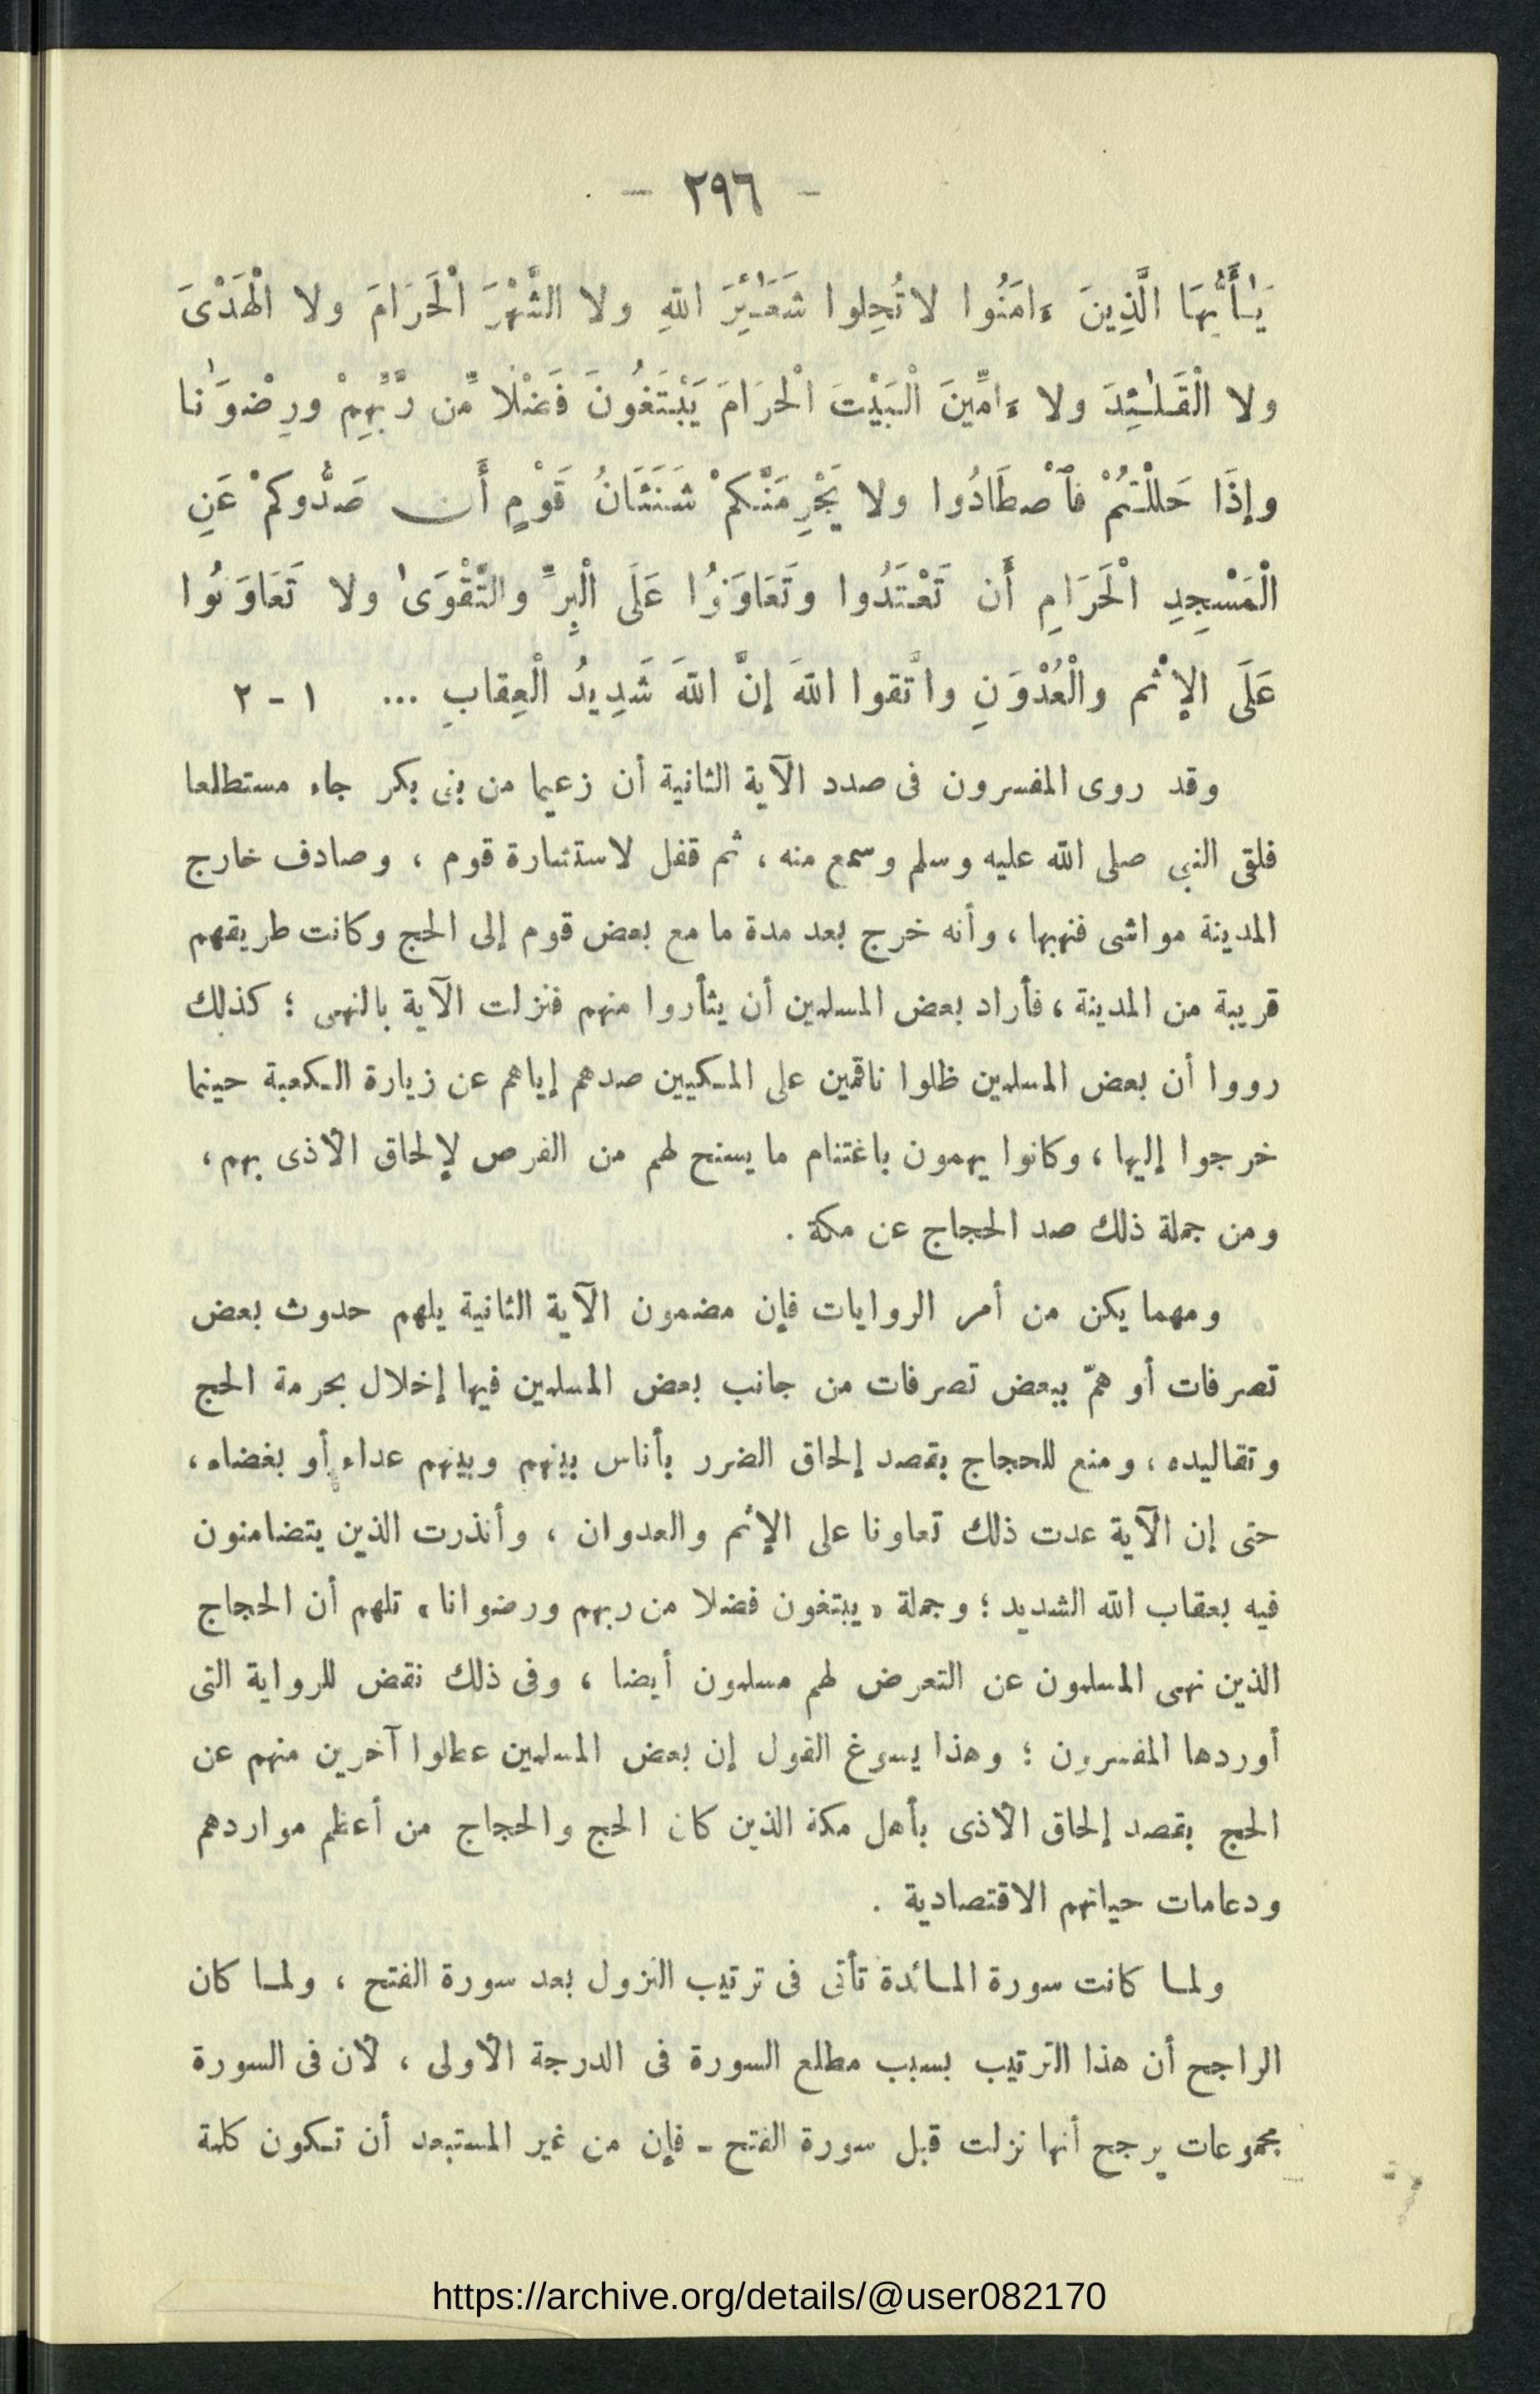 - ٢٩٦ -
يَٰأَيُّهَا الَّذِينَ ءَامَنُوا لا تُحِلوا شَعَٰئِرَ اللهِ ولا الشَّهْرَ الْحَرَامَ ولا الْهَدْىَ
ولا الْقَلَٰئِدَ ولا ءَامِّينَ الْبَيْتَ الْحرَامَ يَبْتَغُونَ فَضْلًا مِّن رَّبِّهِمْ ورِضْوَٰنا
وإذَا حَللْتمُْ فٱصْطَادُوا ولا يَجْرِمَنَّكمْ شَنَئَانُ قَوْمٍ أَن صَدُّوكمْ عَنِ
الْمَسْجِدِ الْحَرَامِ أَن تَعْتَدُوا وتَعَاوَنُوا عَلَى الْبِرِّ والتَّقْوَىٰ ولا تَعَاوَنُوا
عَلَى الإثْم والْعُدْوَنِ واتَّقوا اللهَ إنَّ اللهَ شَدِيدُ الْعِقابِ ... ١ - ٢
وقد روى المفسرون فى صدد الآية الثانية أن زعيما من بنى بكر جاء مستطلعا
فلقى النبى صلى الله عليه وسلم وسمع منه ، ثم قفل لاستشارة قوم ، وصادف خارج
المدينة مواشى فنهبها ، وأنه خرج بعد مدة ما مع بعض قوم إلى الحج وكانت طريقهم
قريبة من المدينة ، فأراد بعض المسلمين أن يثأروا منهم فنزلت الآية بالنهى ؛ كذلك
رووا أن بعض المسلمين ظلوا ناقمين على المكيين صدهم إياهم عن زيارة الكعبة حينما
خرجوا إليها ، وكانوا يهمون باغتنام ما يسنح لهم من الفرص لإلحاق الأذى بهم ،
ومن جملة ذلك صد الحجاج عن مكة .
ومهما يكن من أمر الروايات فإن مضمون الآية الثانية يلهم حدوث بعض
تصرفات أو همّ ببعض تصرفات من جانب بعض المسلمين فيها إخلال بحرمة الحج
وتقاليده ، ومنع للحجاج بقصد إلحاق الضرر بأناس بينهم وبينهم عداء أو بغضاء ،
حتى إن الآية عدت ذلك تعاونا على الإثم والعدوان ، وأنذرت الذين يتضامنون
فيه بعقاب الله الشديد ؛ وجملة « يبتغون فضلا من ربهم ورضوانا » تلهم أن الحجاج
الذين نهى المسلمون عن التعرض لهم مسلمون أيضا ، وفى ذلك نقض للرواية التى
أوردها المفسرون ؛ وهذا يسوغ القول إن بعض المسلمين عطلوا آخرين منهم عن
الحج بقصد إلحاق الأذى بأهل مكة الذين كان الحج والحجاج من أعظم مواردهم
ودعامات حياتهم الاقتصادية .
ولما كانت سورة المائدة تأتى فى ترتيب النزول بعد سورة الفتح ، ولما كان
الراجح أن هذا الترتيب بسبب مطلع السورة فى الدرجة الأولى ، لأن فى السورة
مجموعات يرجح أنها نزلت قبل سورة الفتح - فإن من غير المستبعد أن تكون كلمة
https://archive.org/details/@user082170